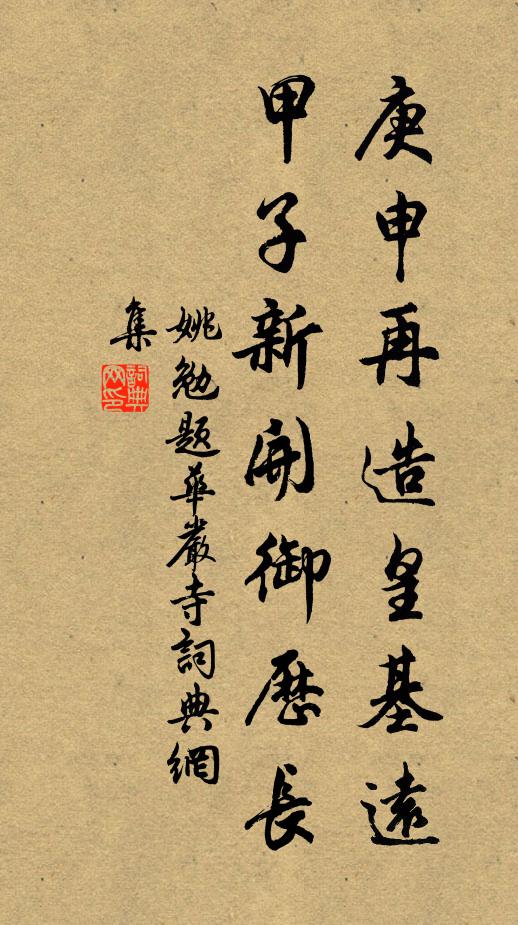 庚申再造皇基遠
甲子新開御歷長
姚勉題華嚴寺詞典網
集
詞典網印